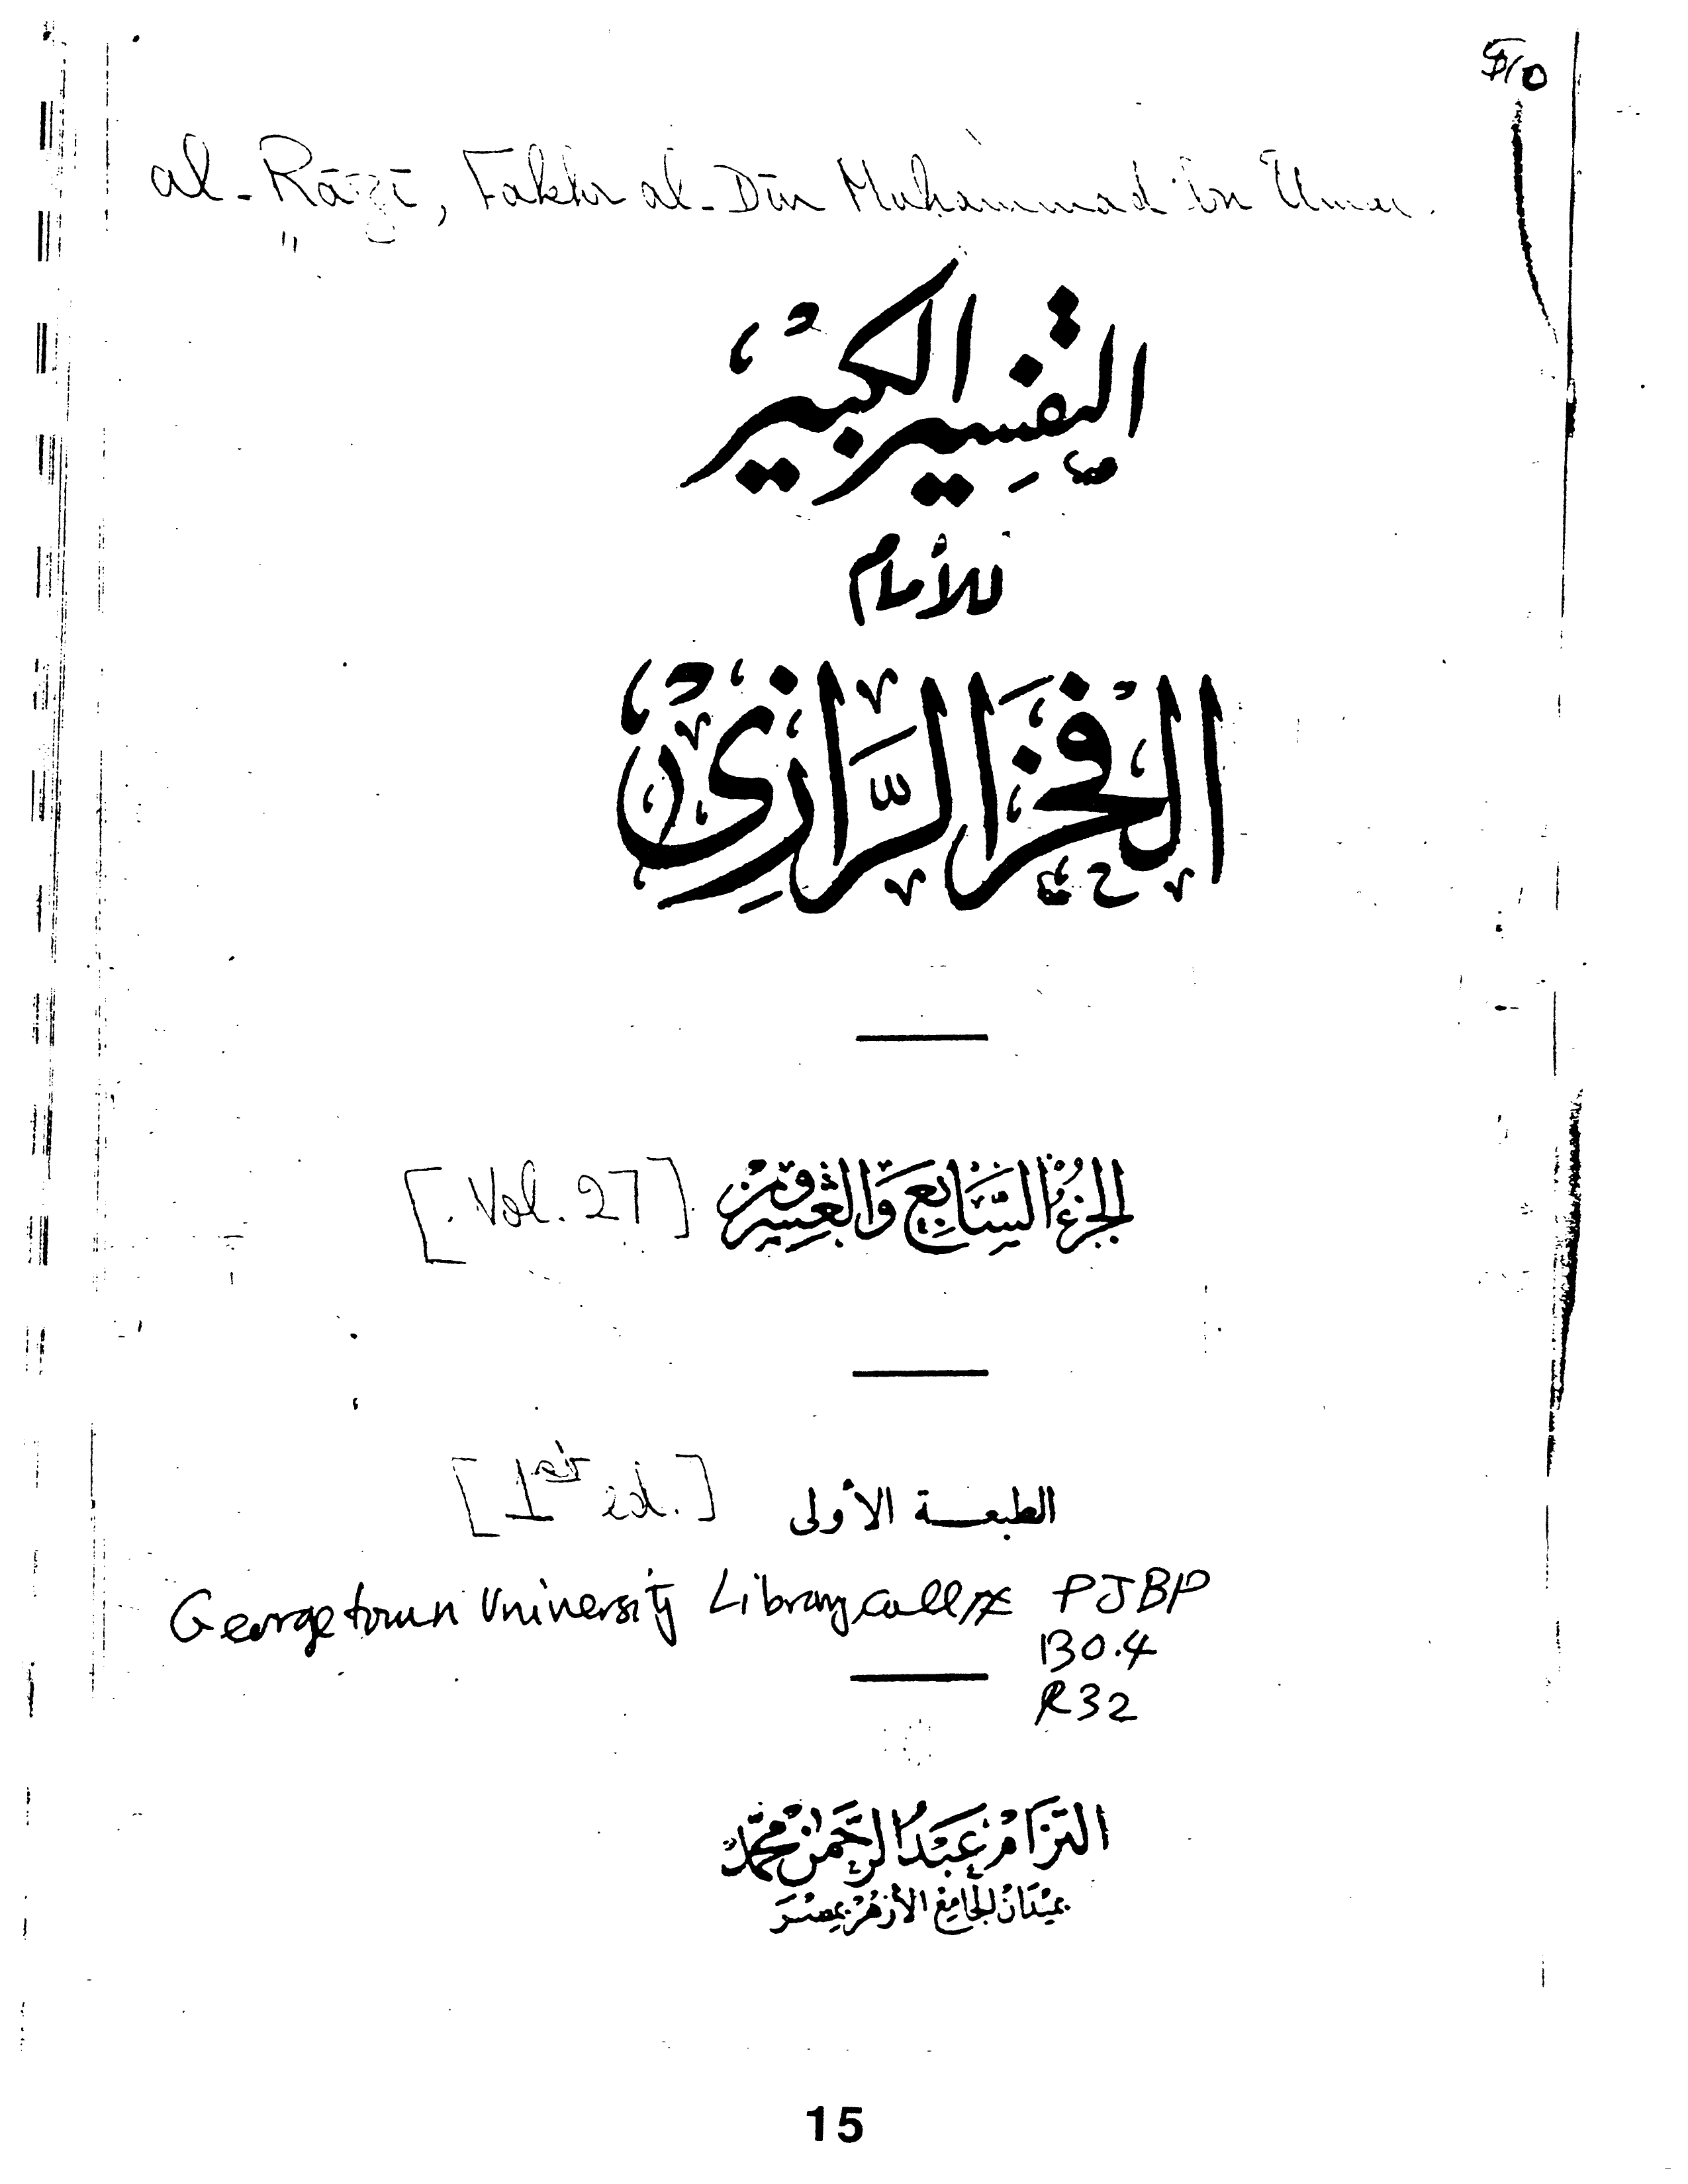 $10
al-Rāzī, Fakhr al-Dīn Muhammad ibn Umar.
التفسير الكبير
للأمام
الفخر الرازي
الجزء السابع والعشرون [Vol. 27]
الطبعة الأولى [1st ed.]
Georgetown University Library call # PJBP
130.4
R32
التزام عبد الرحمن محمد
بميدان الجامع الأزهر بمصر
15